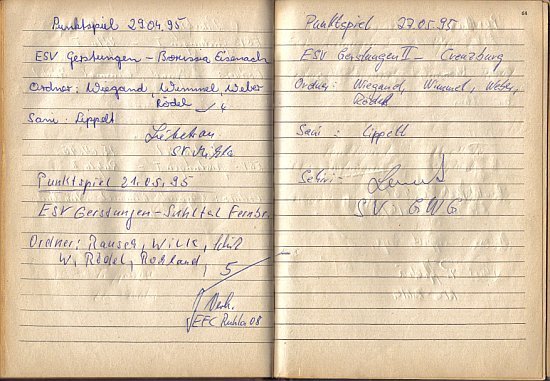 Punktspiel 29.04.95
ESV Gerstungen - Borussia Eisenach
Ordner: Wiegand, Wimmel, Weber
Rödel 4
Sani: Lippelt
SV Mihla
Punktspiel 21.05.95
ESV Gerstungen - Suhltal Fernbr.
Ordner: Rausch, Wilk,
W, Rödel, Roßland, 5
EFC Ruhla 08
64
Punktspiel 27.05.95
ESV Gerstungen II - Creuzburg
Ordner: Wiegand, Wimmel, Weber,
Rödel
Sani: Lippelt
Schiri -
SV GWG